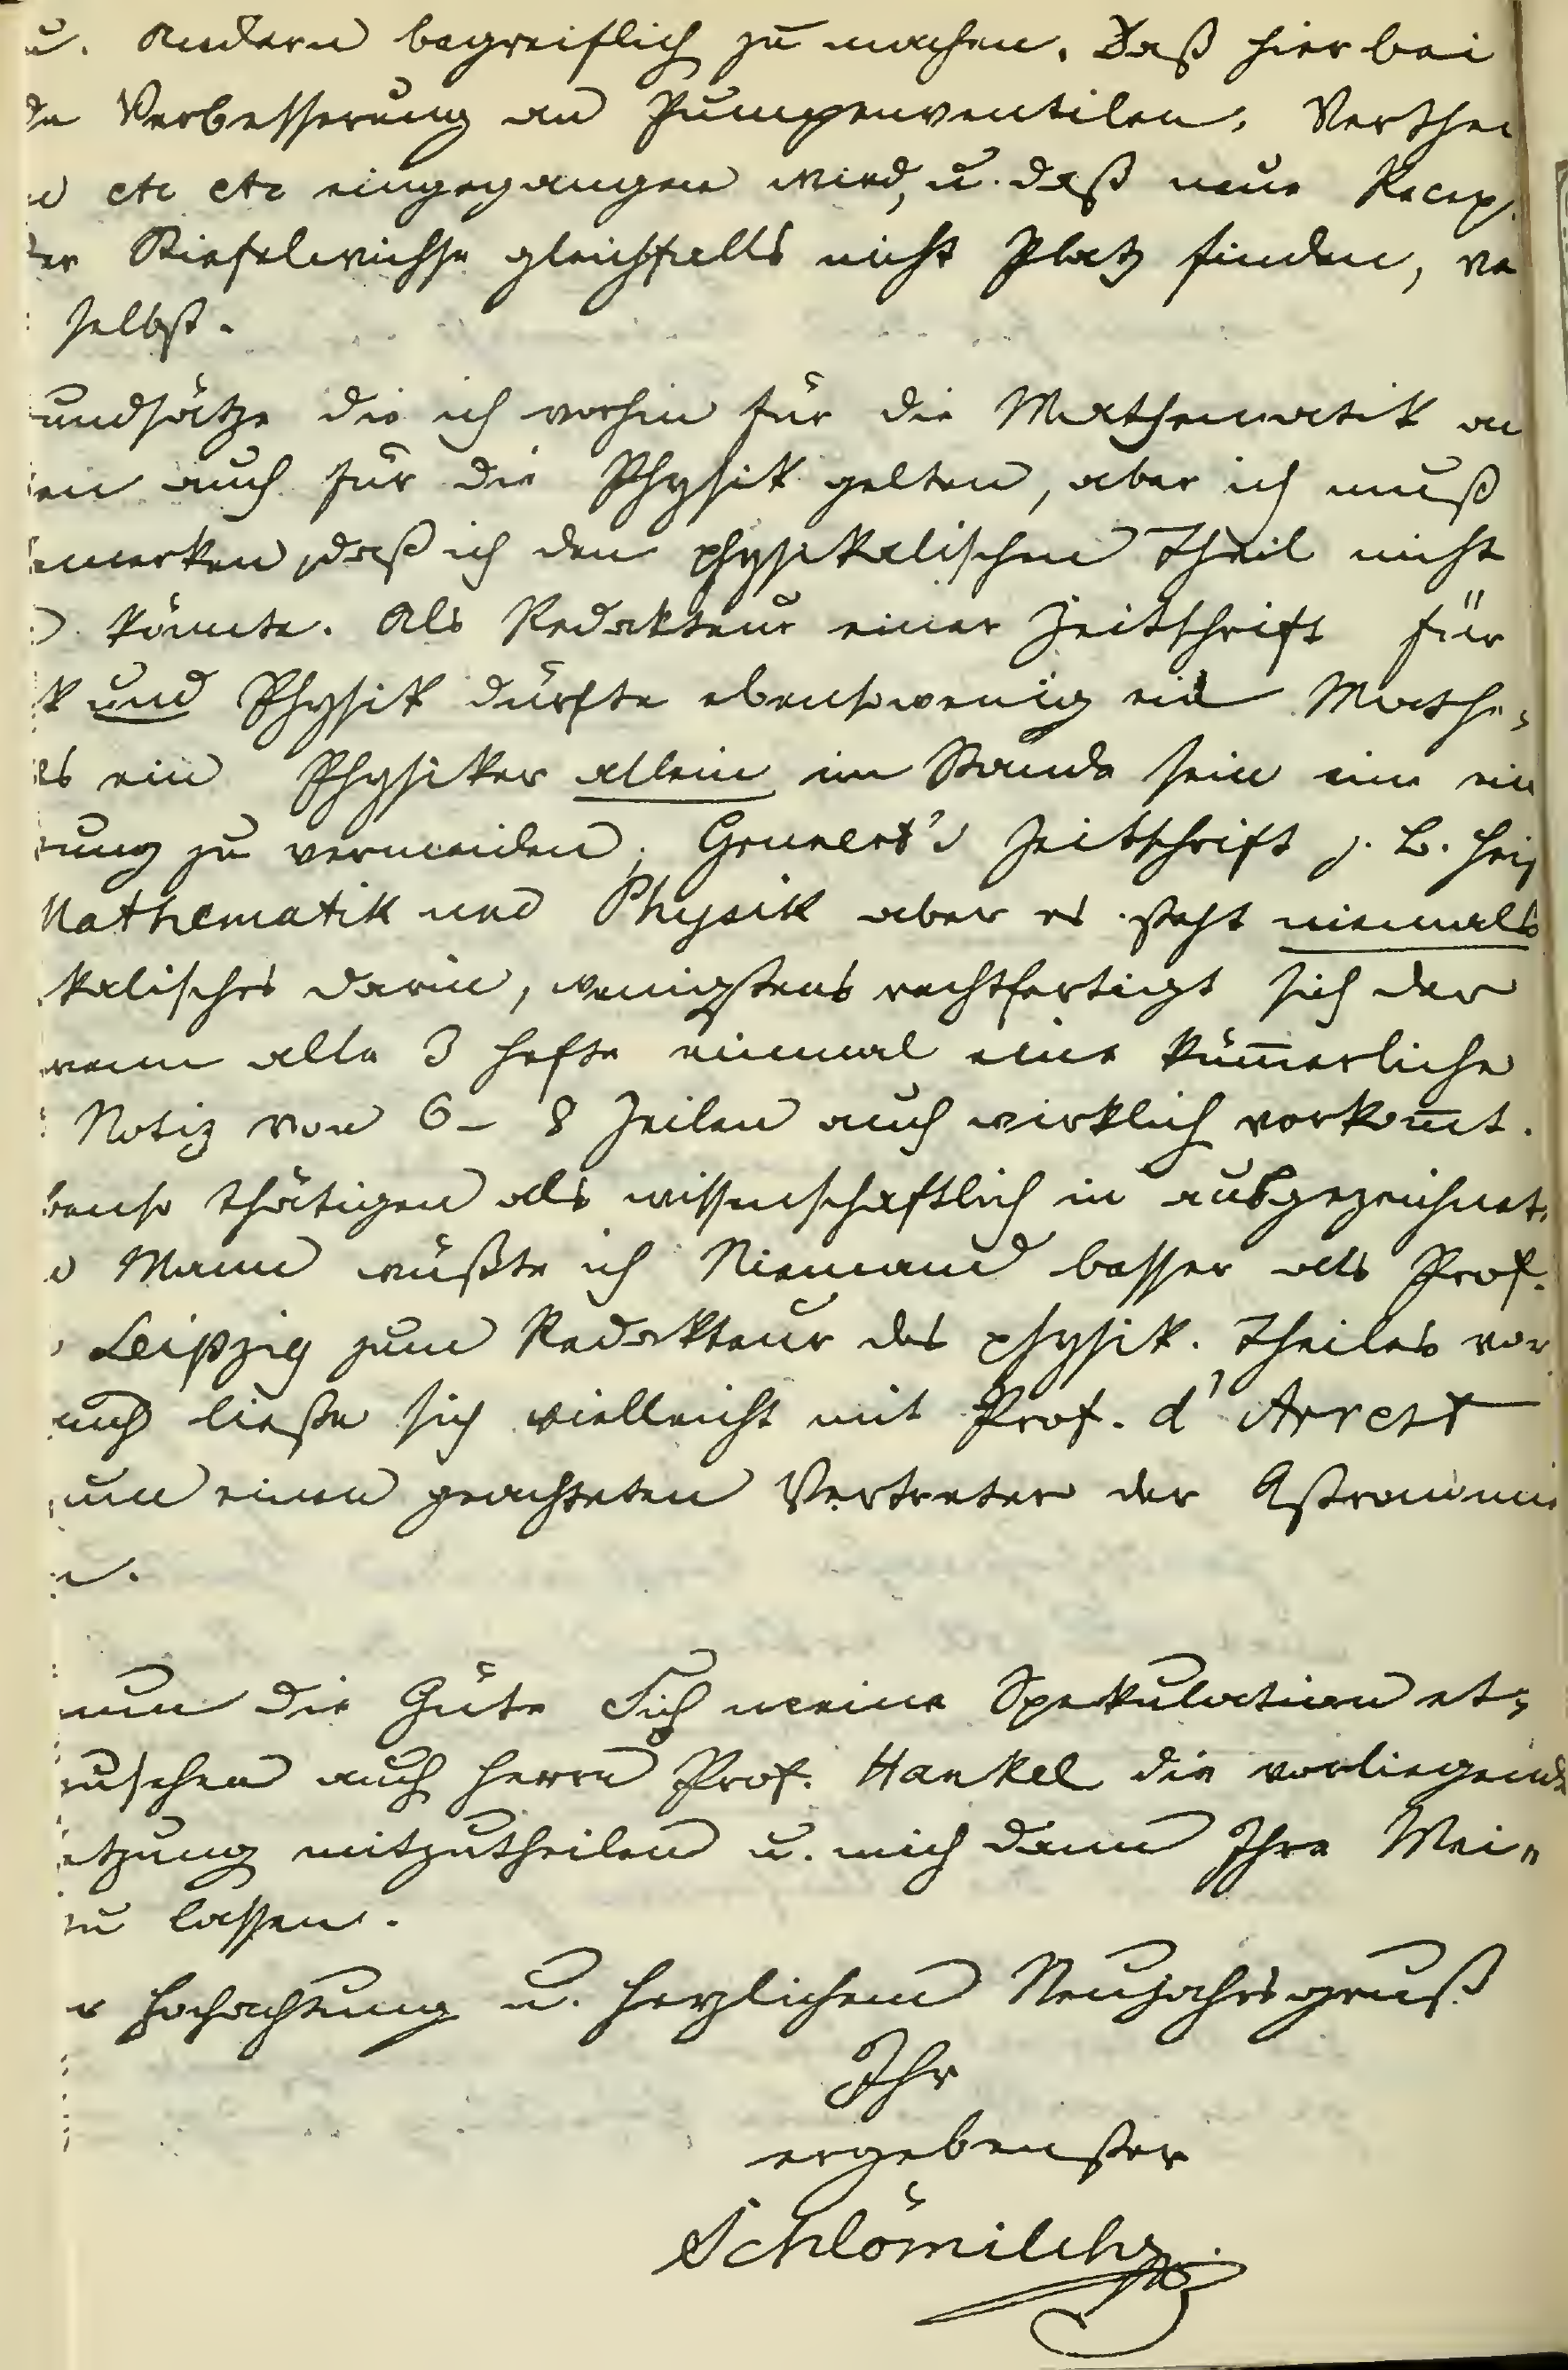 u. Andern begreiflich zu machen. Daß hierbei
de Verbesserung an Pumpenventilen, Verthei
n etc etc eingegangen wird, u. daß neue Recep
der Stiefelwichse gleichfalls nicht Platz finden, ve
selbst.
undsätze die ich vorhin für die Mathematik an
en auch für die Physik gelten, aber ich muß
emerken, daß ich den physikalischen Theil nicht
n könnte. Als Redakteur einer Zeitschrift für
k und Physik dürfte ebensowenig ein Mathe⸗
ls ein Physiker allein im Stande sein eine ein
rung zu vermeiden; Grunert's Zeitschrift z. B. heiß
Mathematik und Physik aber es steht niemals
kalisches darin, wenigstens rechtfertigt sich der
wenn alle 3 Hefte einmal eine kümerliche
Notiz von 6 – 8 Zeilen auch wirklich vorkomt.
benso thätigen als wissenschaftlich in ausgezeichnet.
n Mann wüßte ich Niemand besser als Prof.
Leipzig zum Redakteur des physik. Theiles vor
auch ließe sich vielleicht mit Prof. d'Arrest
um einen geachteten Vertreter der Astronomie
n.
nun die Güte Sich meine Spekulation et⸗
zusehen auch Herrn Prof. Hankel die vorliegende
etzung mitzutheilen u. mich dann Ihre Mei⸗
zu lassen.
r Hochachtung u. herzlichem Neujahrsgruß
Ihr
ergebenster
Schlömilch